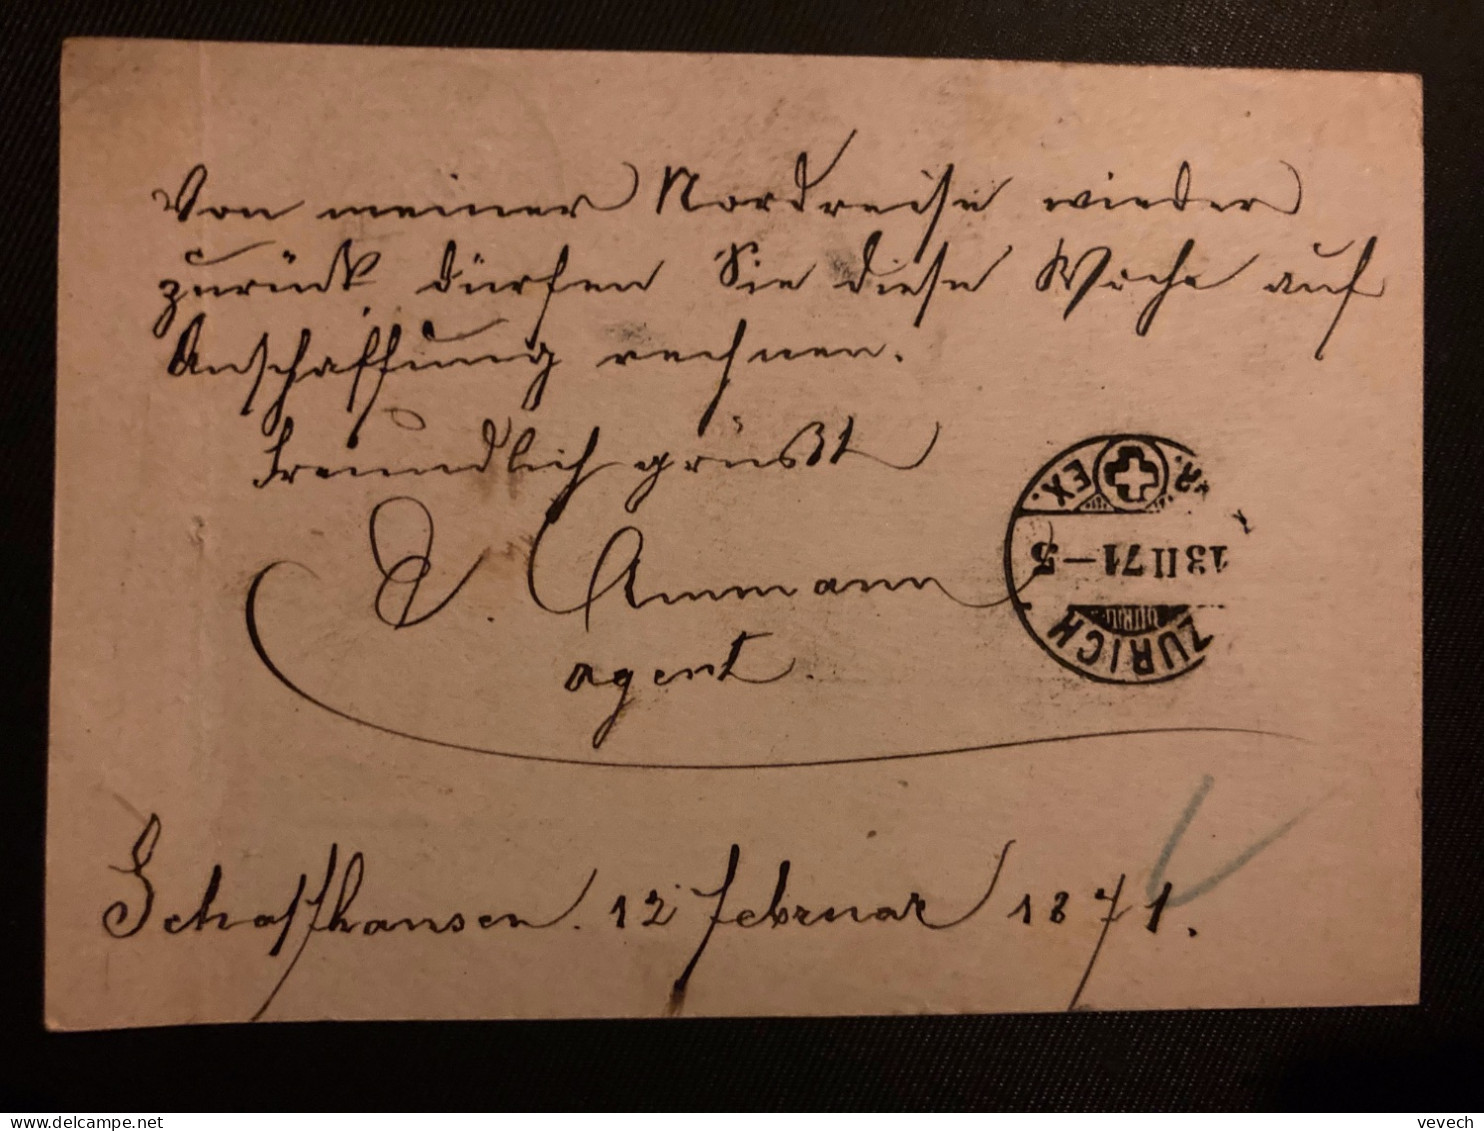 Von meiner Nordreise wieder
zurück dürfen Sie diese Woche auf
Anschaffung rechnen.
Freundlich grüßt
Ammann
agent.
EX.
13 II 71 - 5
ZURICH
Schaffhausen. 12 Februar 1871.
vevech